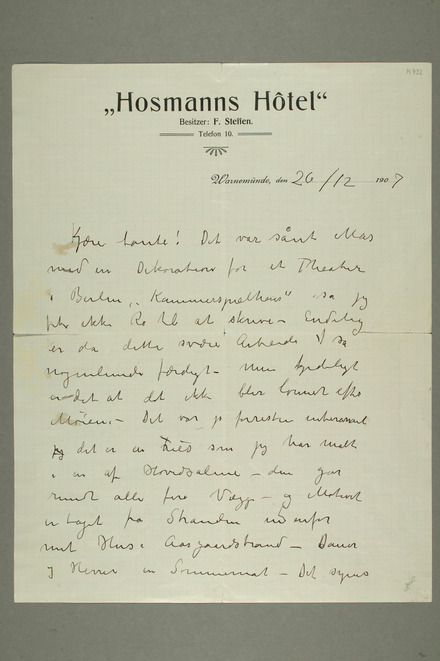 N 933
„Hosmanns Hôtel“
Besitzer: F. Steffen.
Telefon 10.
Warnemünde, den 26/12 1907
Kjære tante! Det var sånt Mas
med en Dekoration for et Theater
i Berlin, „Kammerspielhaus“ – så jeg
fik ikke Ro til at skrive – Endelig
er da dette svære Arbeide så
nogenlunde færdigt – men
er det at det ikke blir lønnet efter
Møien – Det var jo forresten
jeg det er en Fries som jeg har malt
i en af Hovedsalene – den går
rundt alle fire Vægge – og Motivet
er taget fra Stranden nedenfor
mit Hus i Aasgaardstrand – Damer
og Herrer en Sommernat – Det synes